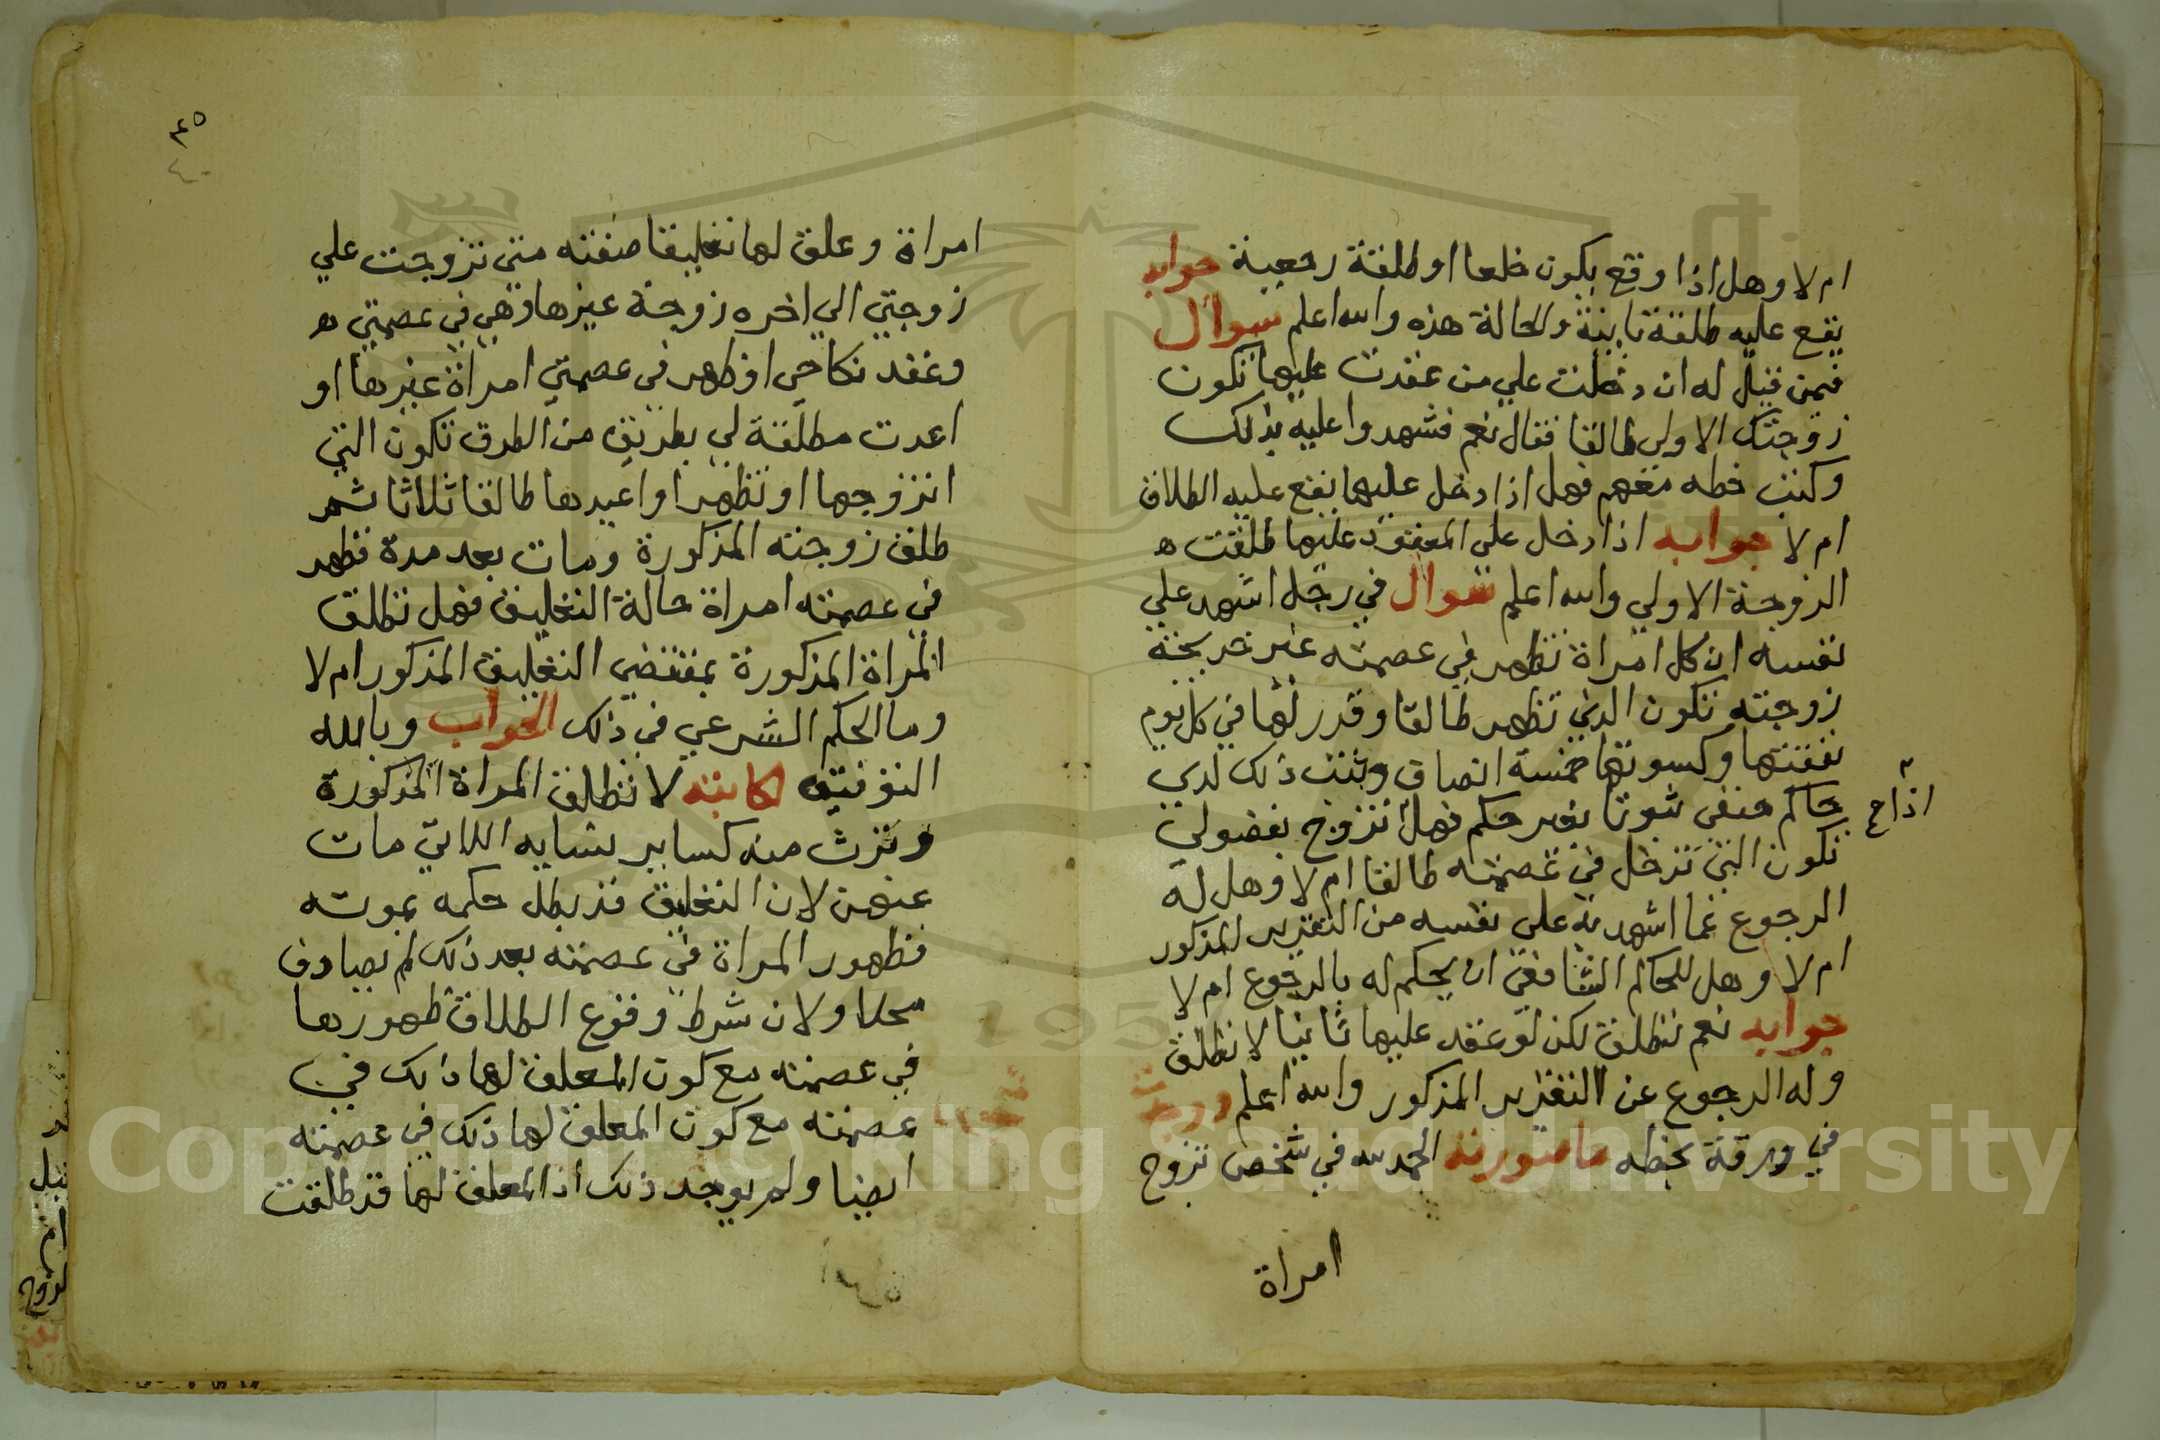 ام لا وهل اذا وقع يكون خلعا او طلقة رجعية جوابه
يقع عليه طلقة باينة والحالة هذه والله اعلم سوال
فيمن قيل له ان دخلت علي من عقدت عليها تكون
زوجتك الاولي طالقا فقال نعم فشهدوا عليه بذلك
وكتب خطه معهم فهل اذا دخل عليها يقع عليه الطلاق
ام لا جوابه اذا دخل علي المعقود عليها طلقت ه
الزوجة الاولي والله اعلم سوال في رجل اشهد علي
نفسه ان كل امراة تظهر في عصمته غير خديجة
زوجته تكون التي تظهر طالقا وقدر لها في كل يوم
نفقتها وكسوتها خمسة انصاف وثبت ذلك لدي
حاكم حنفي ثبوتا بغير حكم فهل تزوج بفضولي
اذا ح
تكون التي تدخل في عصمته طالقا ام لا وهل له
الرجوع عما اشهد به علي نفسه من التقرير المذكور
ام لا وهل للحاكم الشافعي ان يحكم له بالرجوع ام لا
جوابه نعم تطلق لكن لو عقد عليها ثانيا لا تطلق
وله الرجوع عن التقرير المذكور والله اعلم ورد
في ورقة بخطه ما صورته الحمد لله في شخص تزوج
امراة
٤٥
امراة وعلق لها تعليقا صفته متي تزوجت علي
زوجتي الي اخره زوجة غيرها وهي في عصمتي ه
وعقد نكاحي او ظهر في عصمتي امراة غيرها او
اعدت مطلقة لي بطريق من الطرق تكون التي
اتزوجها او تظهر او اعيدها طالقا ثلاثا ثم
طلق زوجته المذكورة ومات بعد مدة فظهر
في عصمته امراة حالة التعليق فهل تطلق
المراة المذكورة بمقتضي التعليق المذكور ام لا
وما الحكم الشرعي في ذلك الجواب وبالله
التوفيق لكاتبه لا تطلق المراة المذكورة
وترث منه كساير نسايه اللاتي مات
عنهن لان التعليق قد بطل حكمه بموته
فظهور المراة في عصمته بعد ذلك لم يصادف
محلا ولان شرط وقوع الطلاق ظهورها
في عصمته مع كون المعلق لها ذلك في
عصمته مع كون المعلق لها ذلك في عصمته
ايضا ولم يوجد ذلك اذ المعلق لها قد طلقت
Copyright © King Saud University